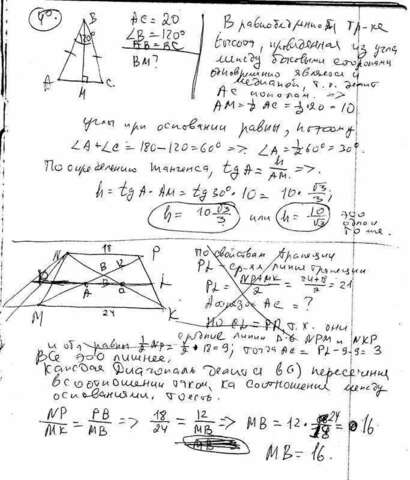 AC = 20
∠B = 120°
AB = BC
BM?
B
120°
A
M
C
В равнобедренном тр-ке
высота, проведенная из угла
между боковыми сторонами
одновременно является и
медианой, т.е. делит
AC пополам. =>
AM = ½ AC = ½ 20 = 10
углы при основании равны, поэтому
∠A + ∠C = 180 - 120 = 60° => ∠A = ½ 60° = 30°.
По определению тангенса, tg A = h/AM =>.
h = tg A · AM = tg 30° · 10 = 10 · √3/3;
h = 10√3/3 или h = 10/√3 это
одно и
то же.
N
18
P
B
L
A
M
24
K
По свойствам трапеции
PL - ср-яя линия трапеции
PL = = 21
AC = ?
т.к. они
средние линии NPM и NKP
и обе равны ½ NP = 9; тогда AC = PL - 9 - 9 = 3
Все это лишнее.
Каждая диагональ делится в (·) пересечения
в соотношении таком, как соотношение между
основаниями. То есть
NP/MK = PB/MB => 18/24 = 12/MB => MB = 12 · 24/18 = 16
MB = 16.